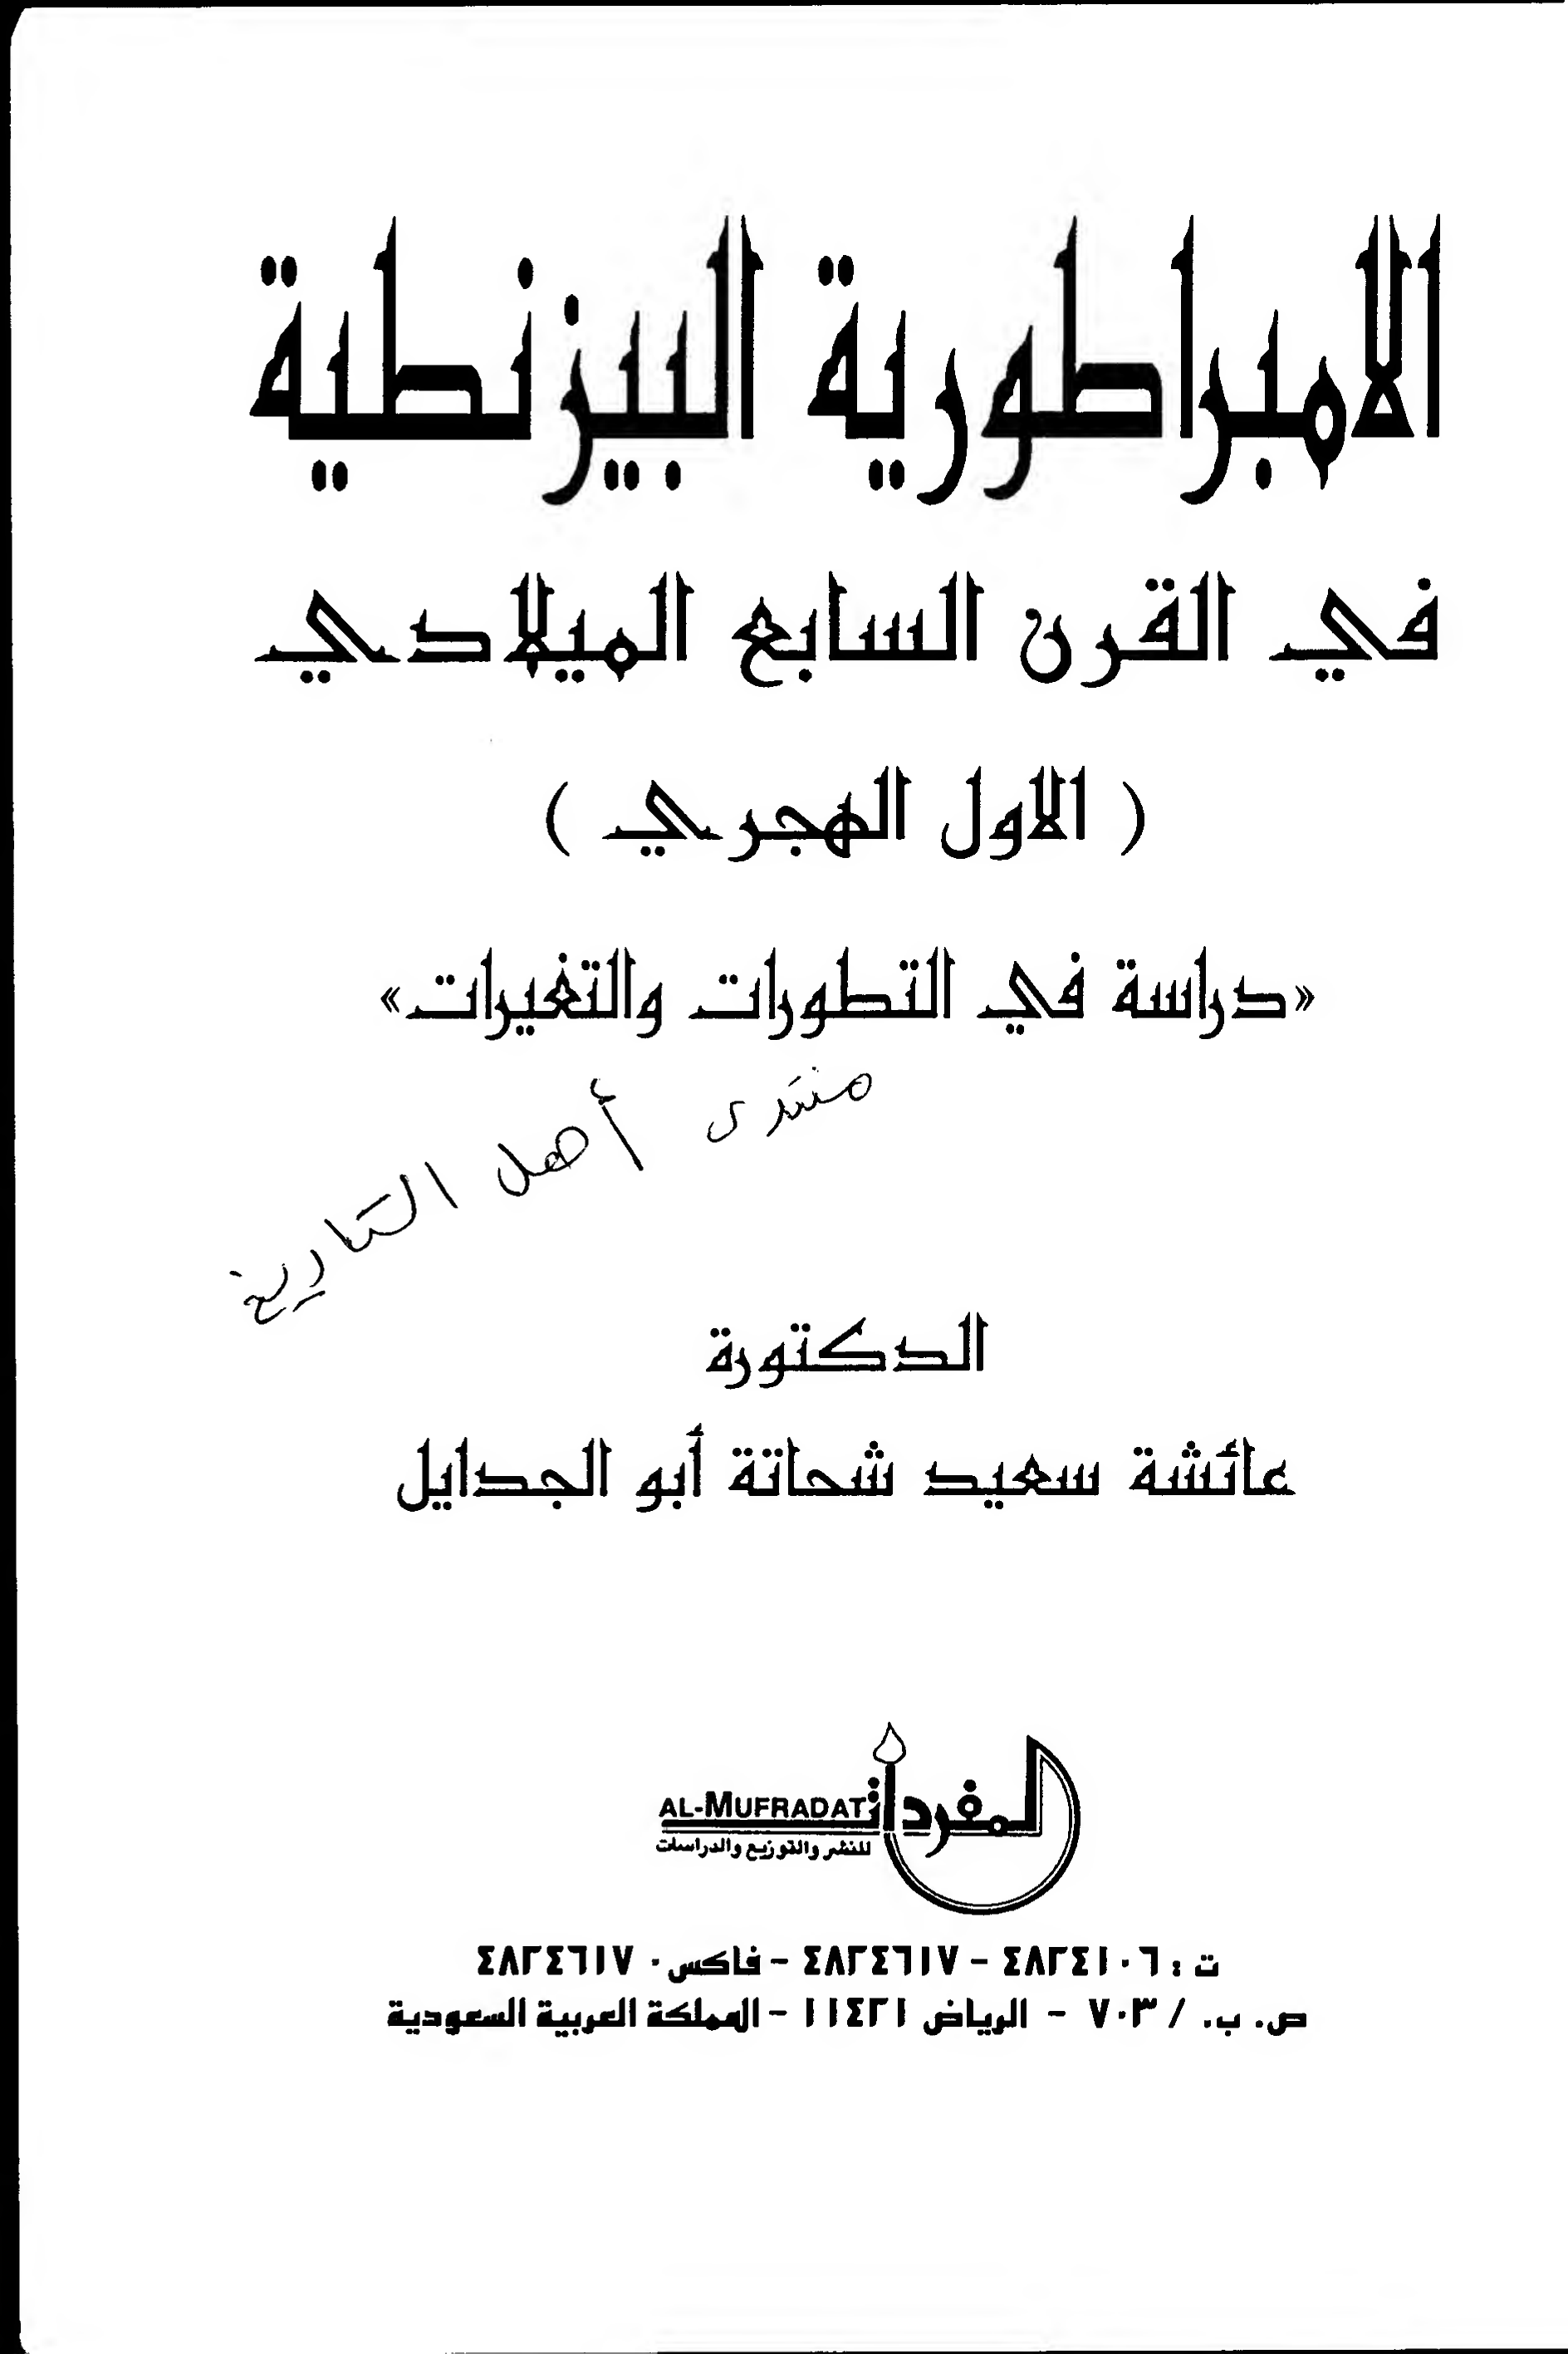 الامبراطورية البيزنطية
في القرن السابع الميلادي
( الاول الهجري )
«دراسة في التطورات والتغيرات»
منتدى أهل التاريخ
الدكتورة
عائشة سعيد شحاتة أبو الجدايل
المفردات
AL-MUFRADAT
للنشر والتوزيع والدراسات
ت : ٤٨٢٤١٠٦ - ٤٨٢٤٦١٧ - فاكس٠ ٤٨٢٤٦١٧
ص. ب. / ٧٠٣ - الرياض ١١٤٢١ - المملكة العربية السعودية